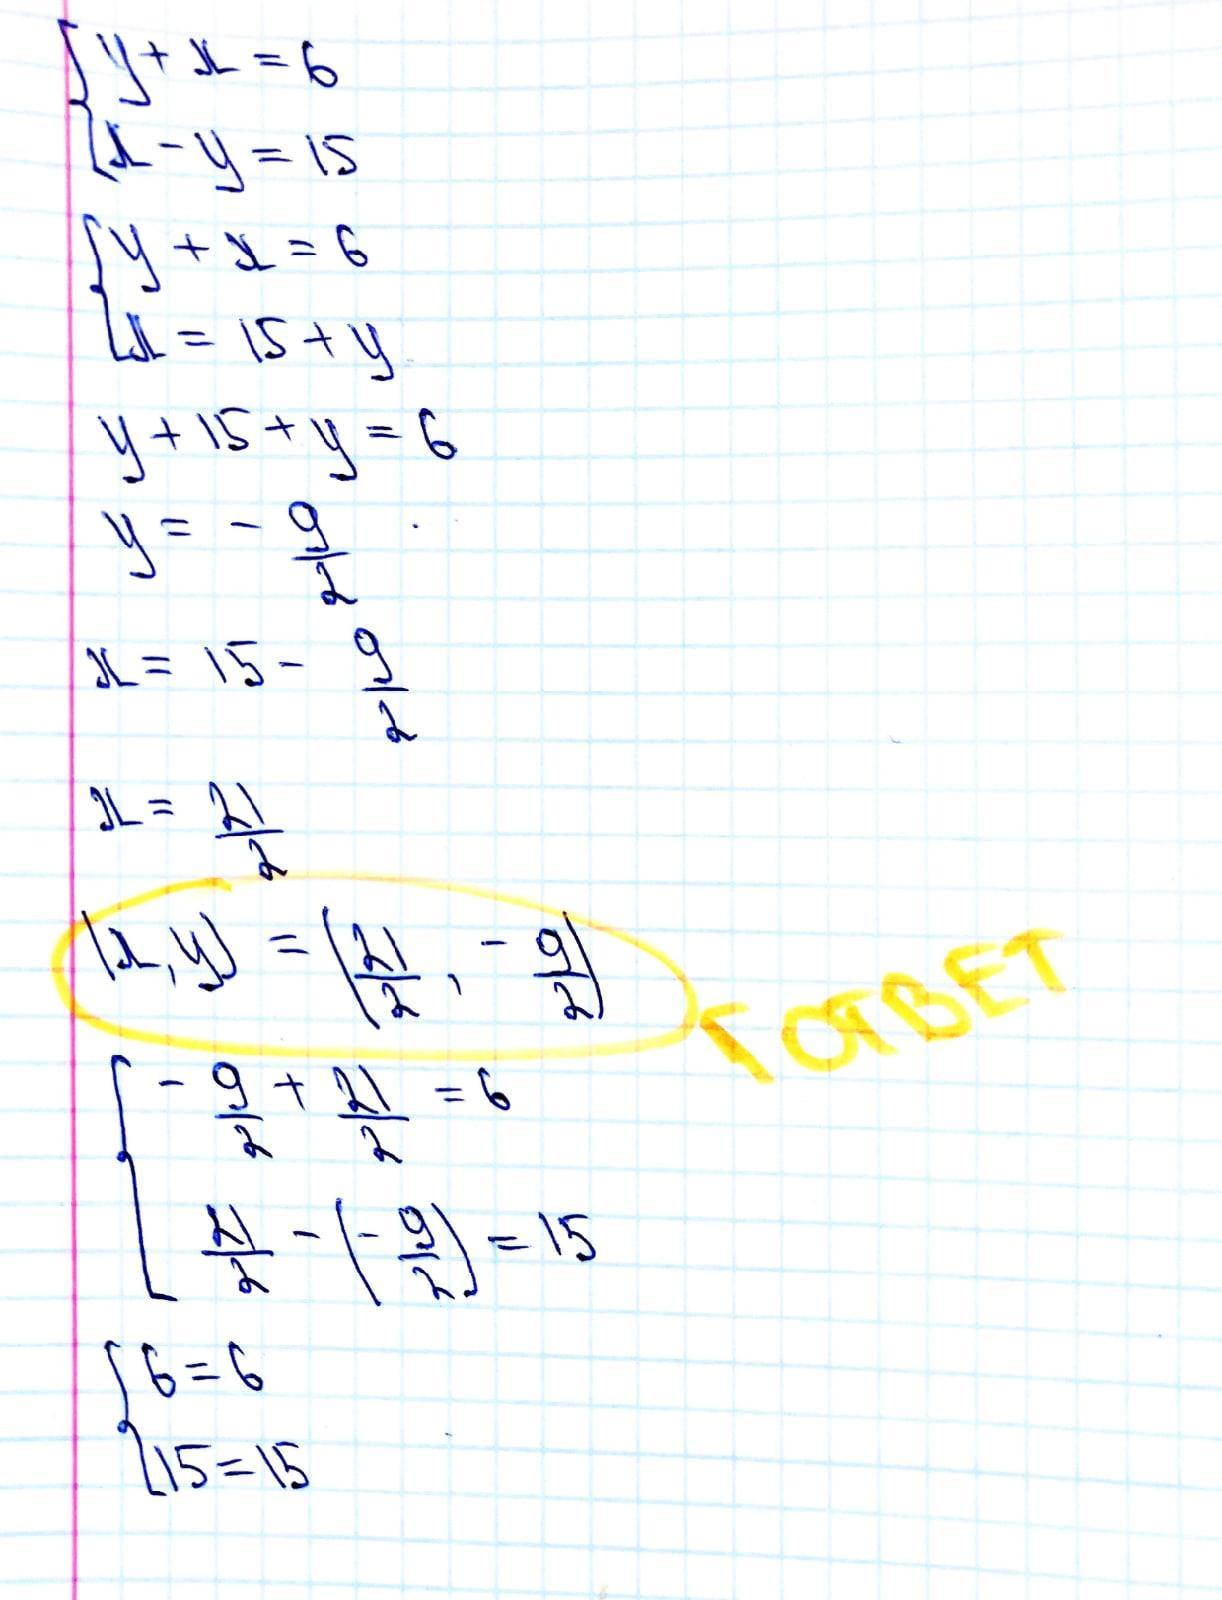 { y + x = 6
{ x - y = 15
{ y + x = 6
{ x = 15 + y
y + 15 + y = 6
y = - 9/2
x = 15 - 9/2
x = 21/2
(x, y) = (21/2, - 9/2)
ОТВЕТ
{ - 9/2 + 21/2 = 6
{ 21/2 - (- 9/2) = 15
{ 6 = 6
{ 15 = 15